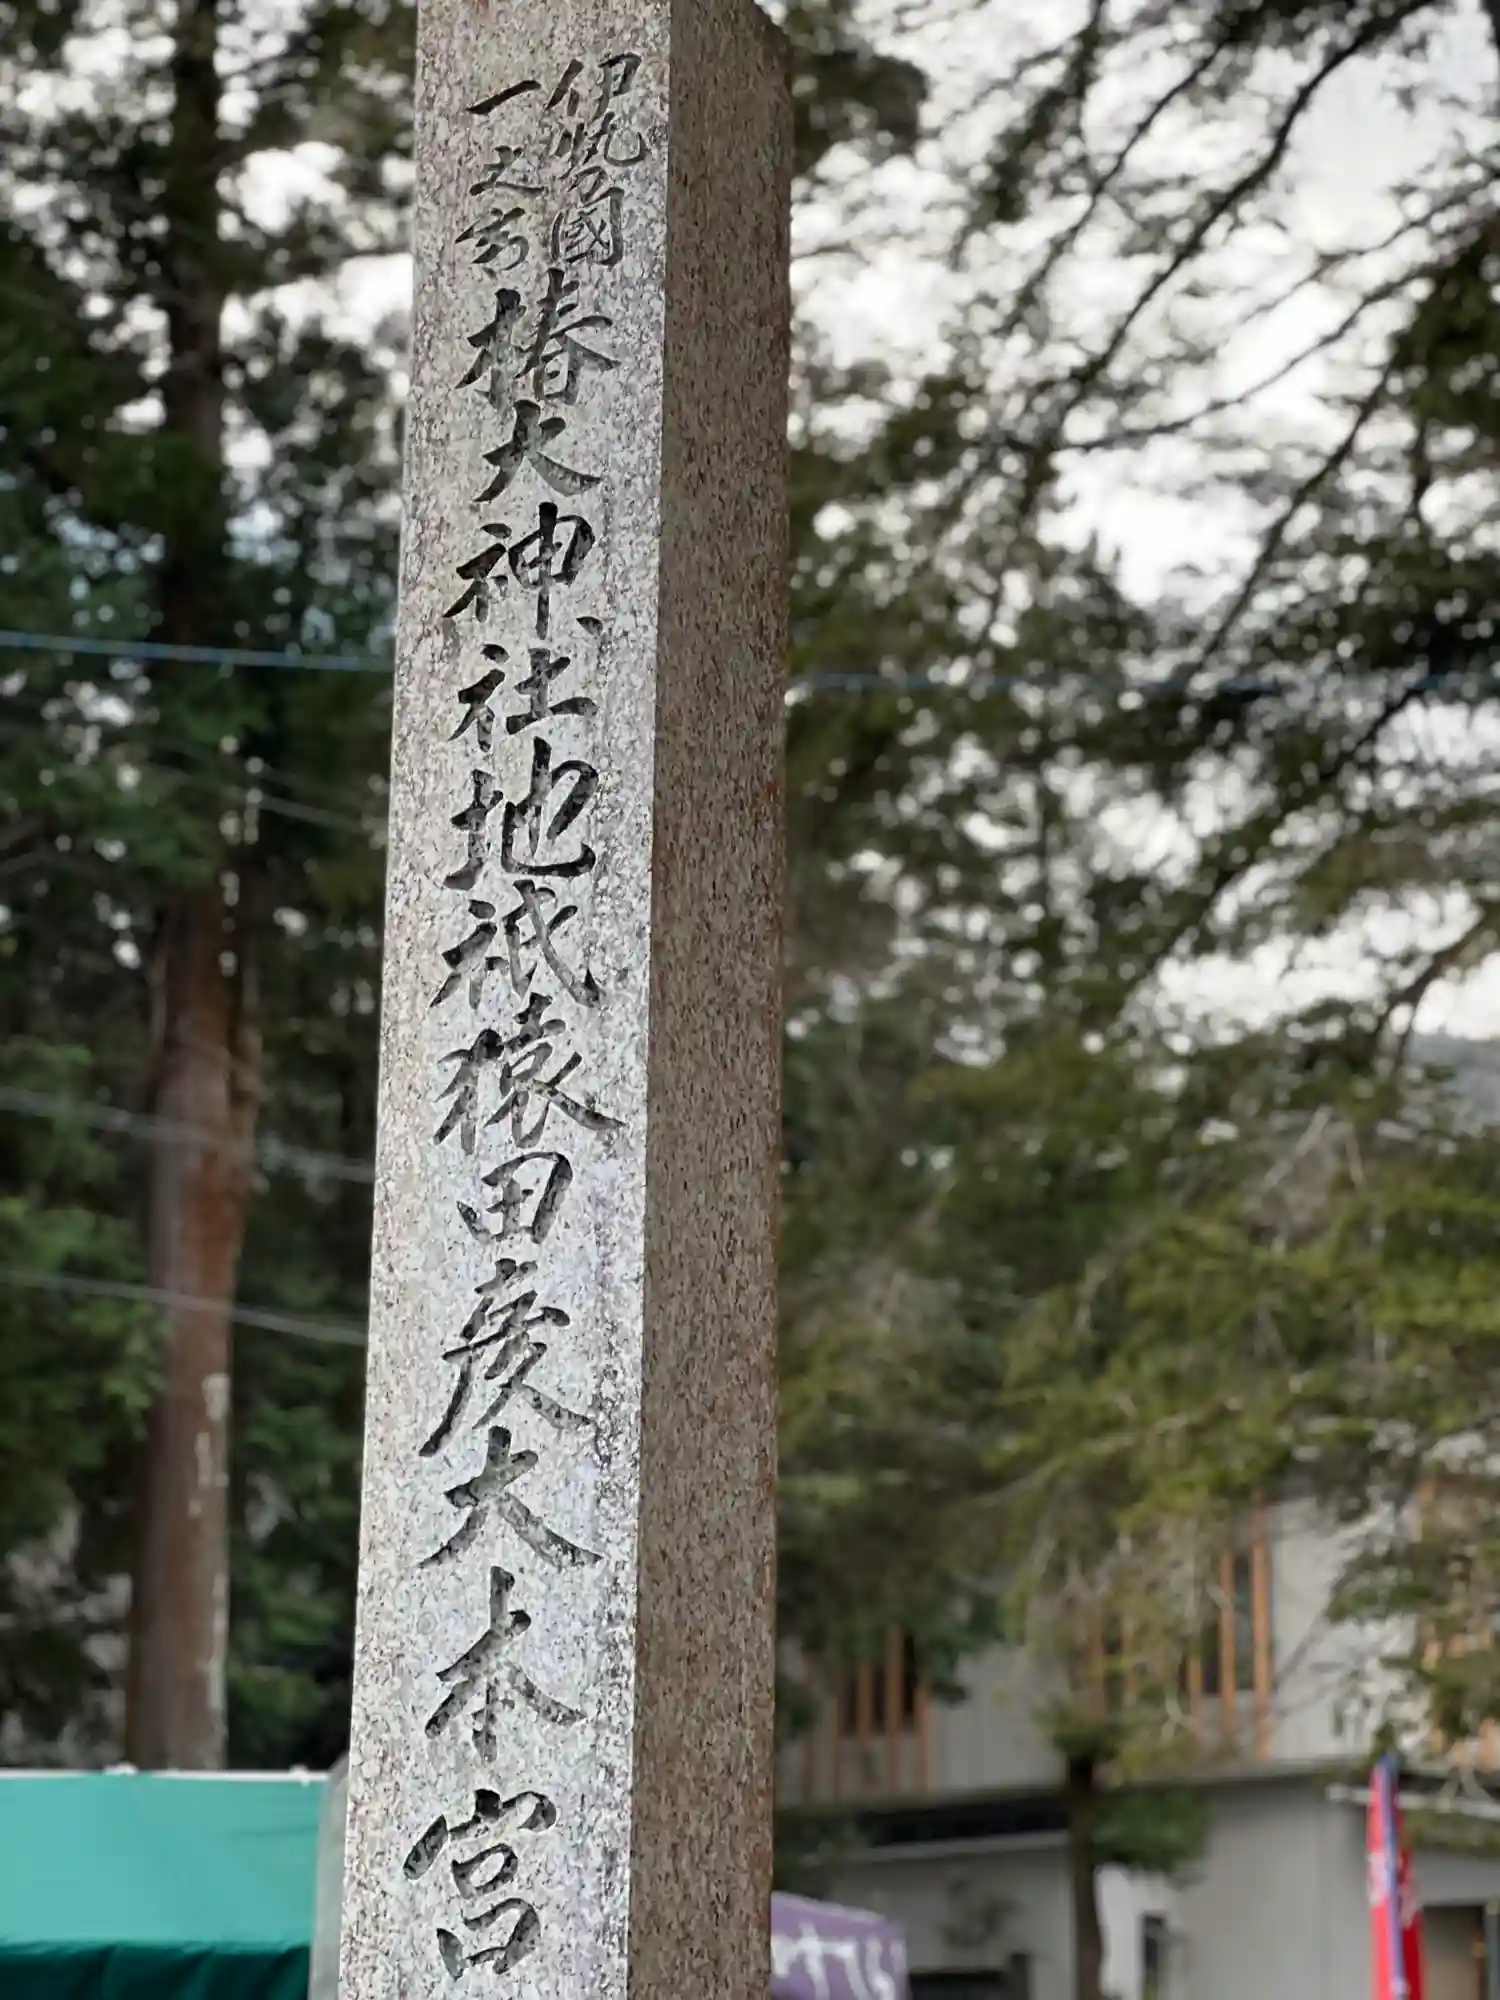 伊勢国
一之宮
椿大神社地祇猿田彦大本宮